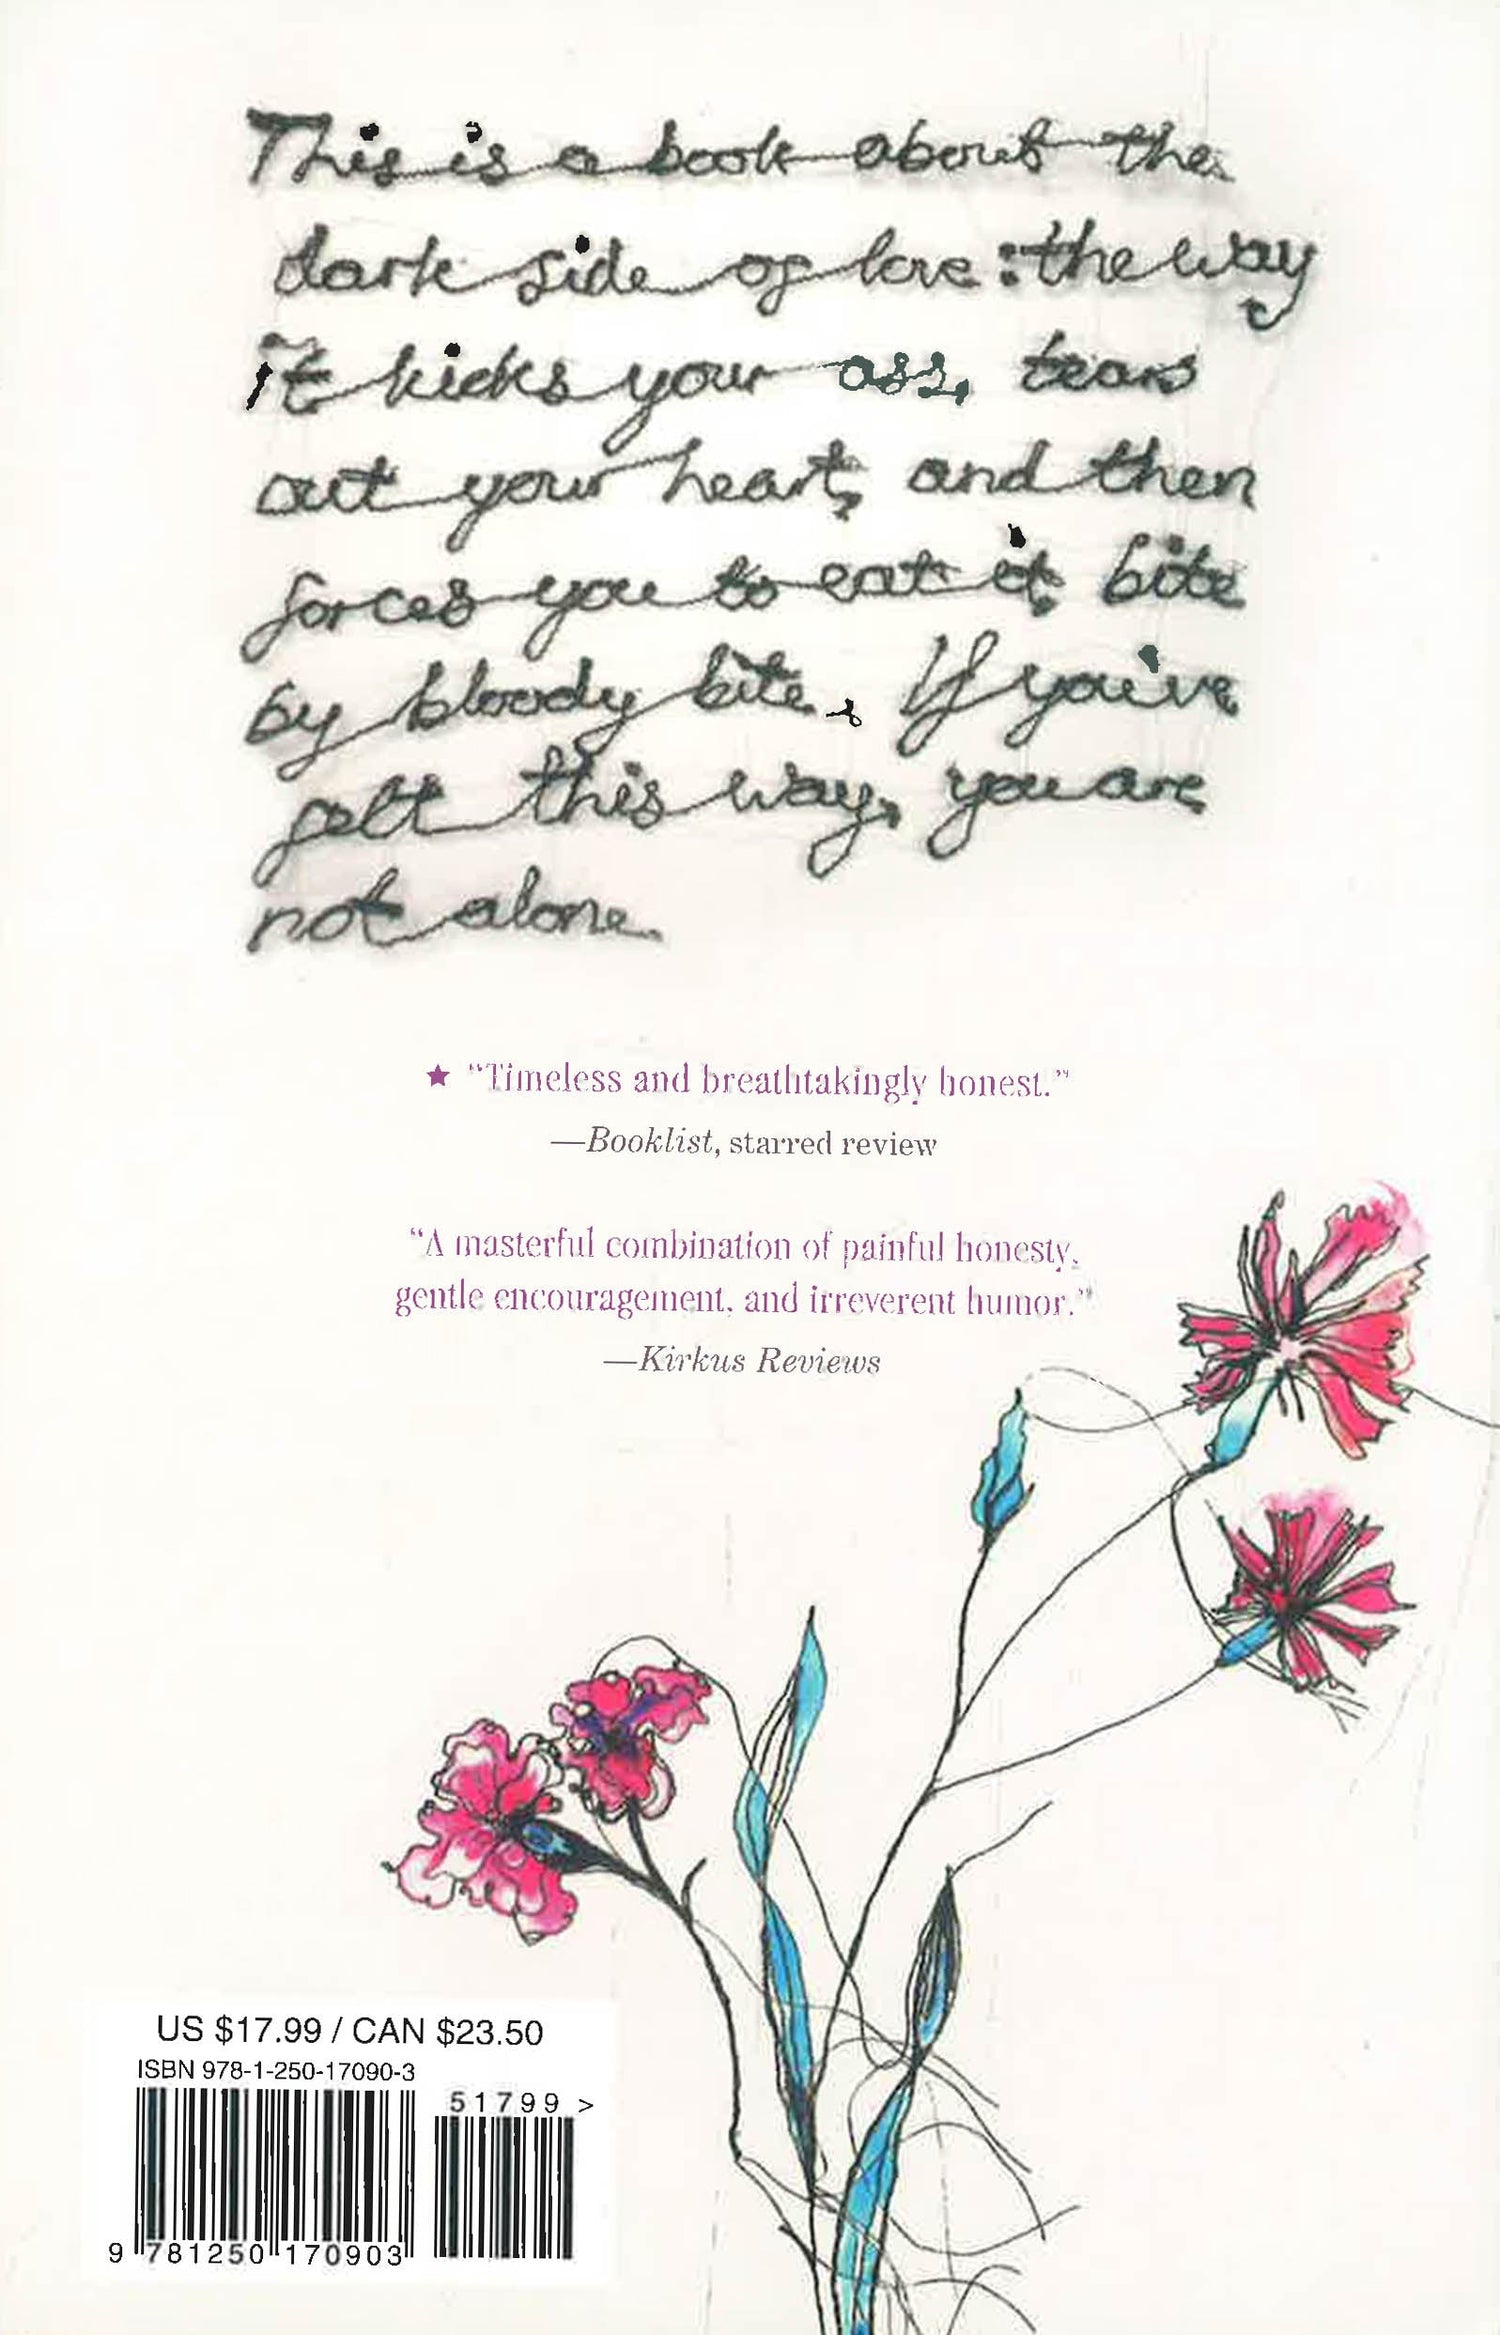 This is a book about the
dark side of love: the way
it kicks your ass, tears
out your heart, and then
forces you to eat it, bite
by bloody bite. If you've
felt this way, you are
not alone.
★ “Timeless and breathtakingly honest.”
—Booklist, starred review
“A masterful combination of painful honesty,
gentle encouragement, and irreverent humor.”
—Kirkus Reviews
US $17.99 / CAN $23.50
ISBN 978-1-250-17090-3
51799 >
9 781250 170903